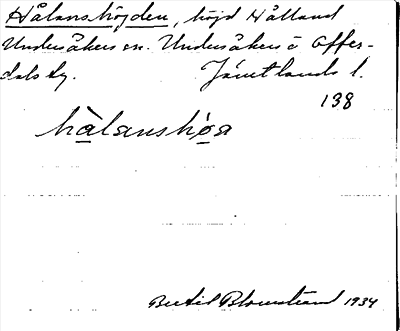 Hålanshöjden, höjd Hålland
Undersåkers sn. Undersåkers o Offer-
dals tg. Jämtlands l.
138
hålanshöa
Bertil Blomstrand 1934